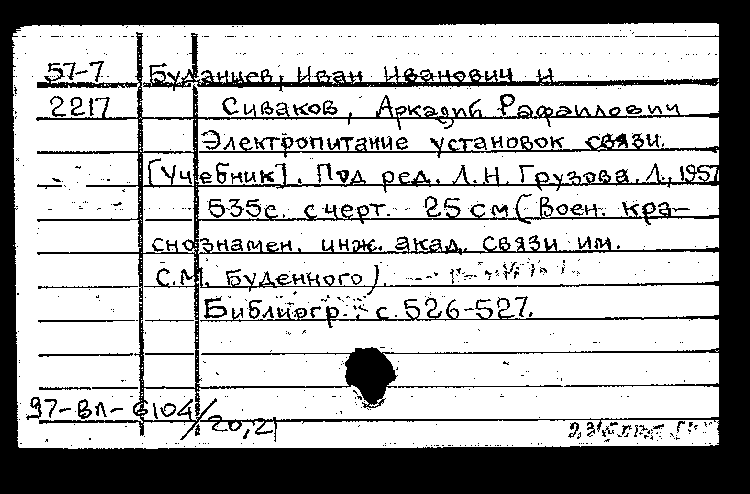 57-7 Буданцев, Иван Иванович и
2217 Сиваков, Аркадий Рафаилович
Электропитание установок связи.
[Учебник]. Под ред. Л.Н. Грузова. Л., 1957
535с. с черт. 25 см (Воен. кра-
снознамен. инж. акад. связи им.
С.М. Буденного).
Библиогр.: с. 526-527.
97-ВЛ-6104/20,21